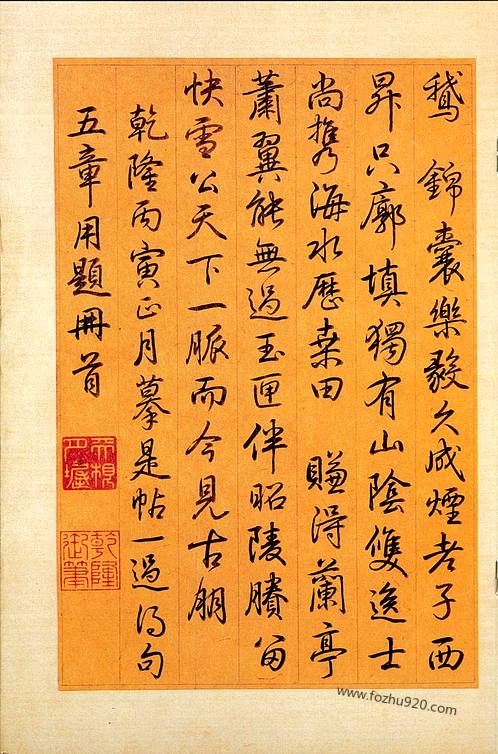 鵝 錦囊樂毅久成煙老子西
昇只廓填獨有山陰雙逸士
尚攜海水歷桒田 賺得蘭亭
蕭翼能無過玉匣伴昭陵賸留
快雪公天下一脈而今見古朋
乾隆丙寅正月摹是帖一過得句
五章用題冊首
乾隆
御筆
www.fozhu920.com